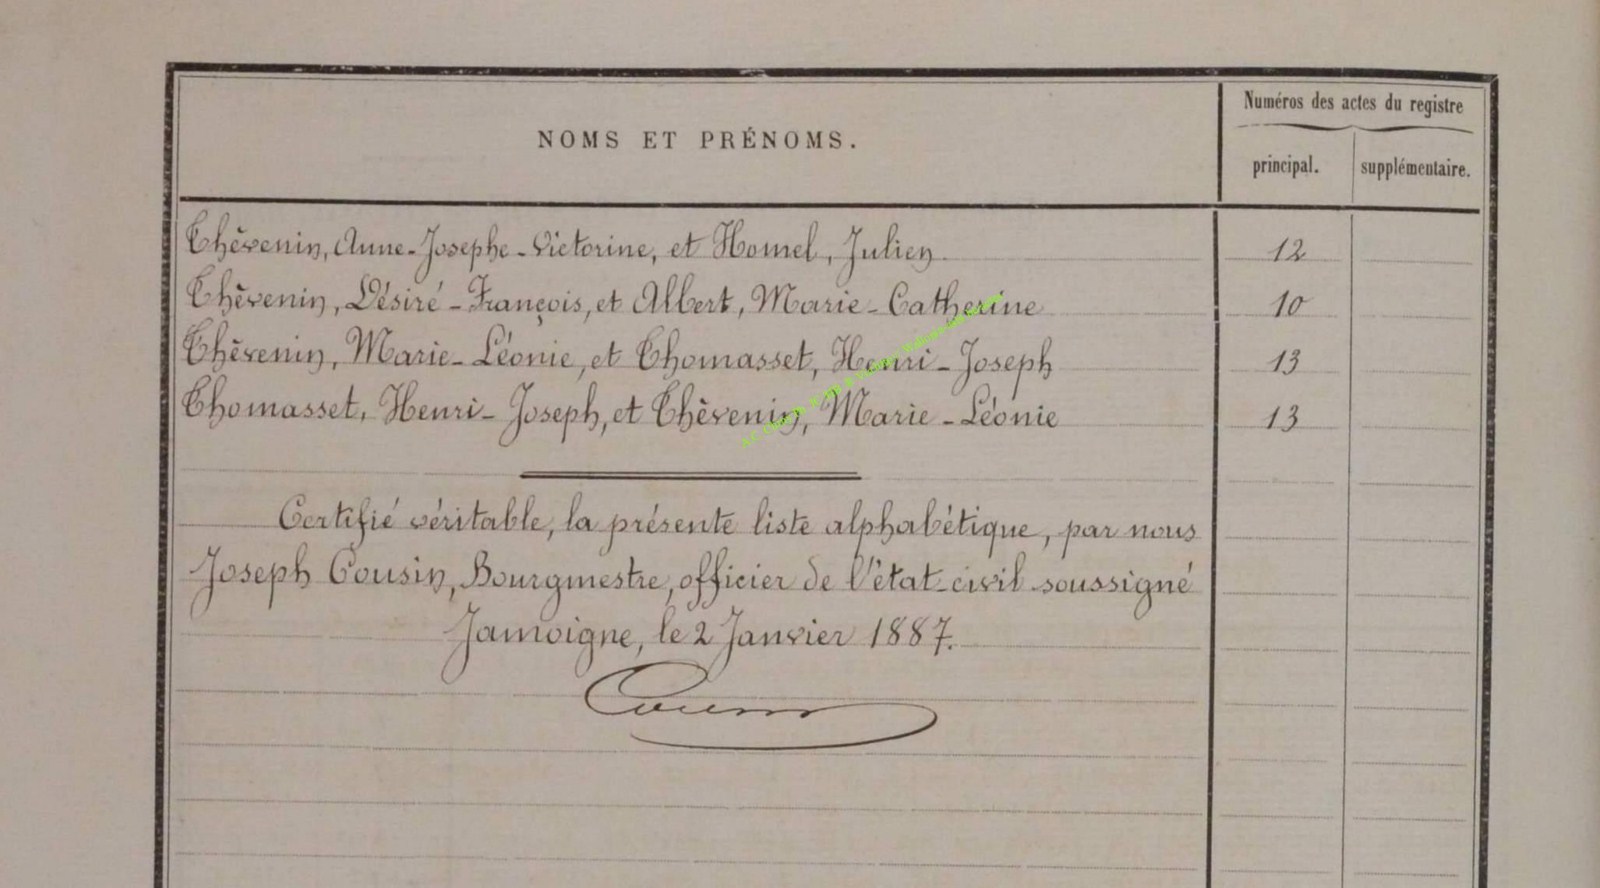 Numéros des actes du registre
NOMS ET PRÉNOMS.
principal. supplémentaire.
Thèvenin, Anne-Josephe-Victorine, et Homel, Julien. 12
Thèvenin, Désiré-François, et Albert, Marie-Catherine 10
Thèvenin, Marie-Léonie, et Thomasset, Henri-Joseph 13
Thomasset, Henri-Joseph, et Thèvenin, Marie-Léonie 13
Certifié véritable, la présente liste alphabétique, par nous
Joseph Cousin, Bourgmestre, officier de l'état-civil soussigné
Jamoigne, le 2 Janvier 1887.
Cousin